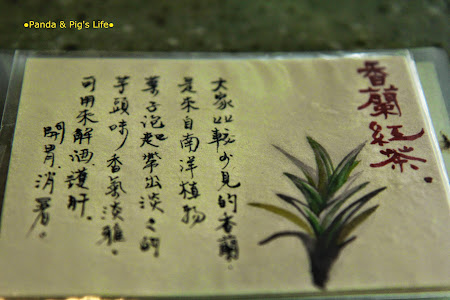 ●Panda & Pig's Life●
香蘭紅茶。
大家比較少見的香蘭。
是來自南洋植物
葉子泡起帶出淡淡的
芋頭味,香氣淡雅。
可用來解酒、護肝、
開胃、消暑。